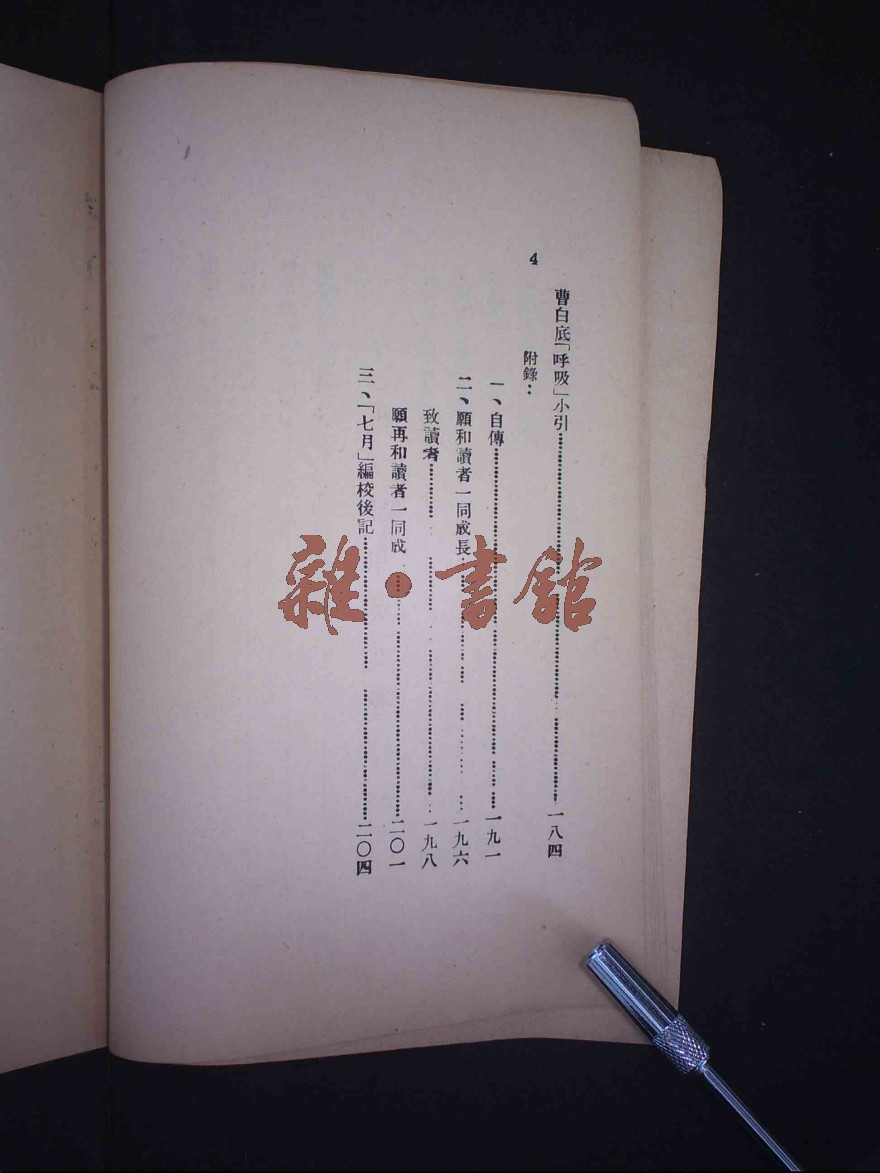 4
曹白底「呼吸」小引……一八四
附錄：
一、自傳……一九一
二、願和讀者一同成長……一九六
致讀者……一九八
願再和讀者一同成……二〇一
三、「七月」編校後記……二〇四
雜·書館